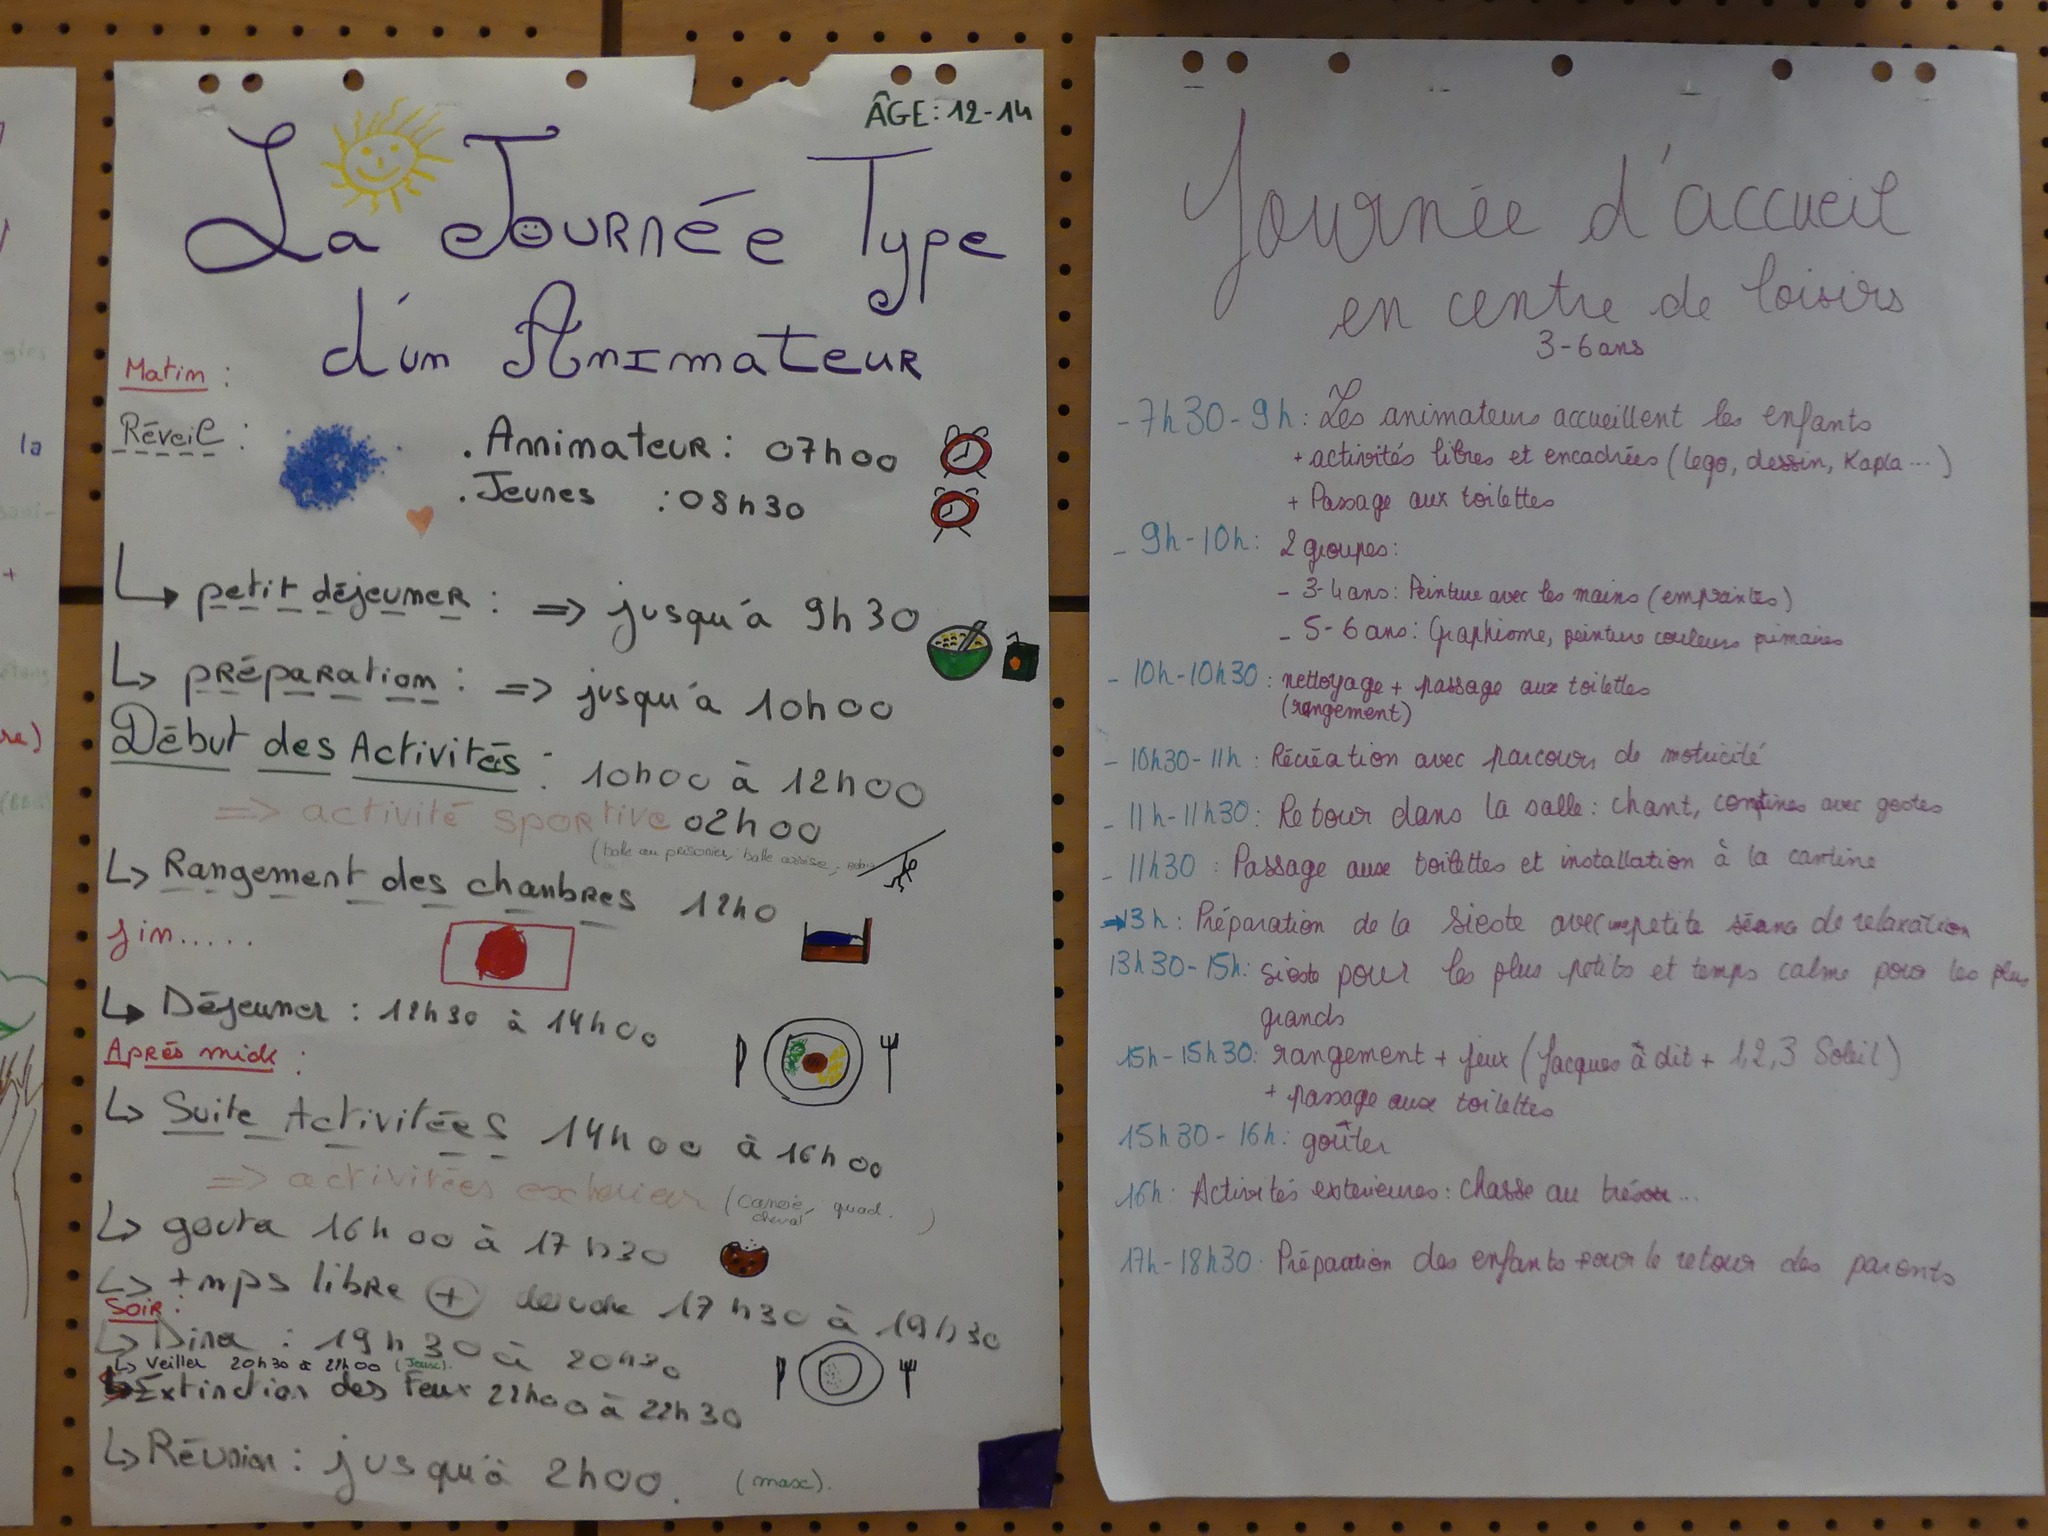 ÂGE: 12-14
La Journée Type
d'un Animateur
Matin :
Réveil :
. Annimateur : 07h00
. Jeunes : 08h30
petit déjeuner : => jusqu'à 9h30
préparation : => jusqu'à 10h00
Début des Activités : 10h00 à 12h00
=> activité sportive 02h00
(balle au prisonier, balle assise,
Rangement des chanbres 12h0
fin.....
Déjeuner : 12h30 à 14h00
Après midi :
Suite Activitées 14h00 à 16h00
=> activitées exterieur (canoë, quad.
cheval )
gouta 16h00 à 17h30
temps libre + douche 17h30 à 19h30
Soir :
Dina : 19h30 à 20h30
Veiller 20h30 à 22h00 (Jeux).
Extinction des Feux 22h00 à 22h30
Réunion : jusqu'à 2h00. (max).
Journée d'accueil
en centre de loisirs
3-6 ans
- 7h30-9h : Les animateurs accueillent les enfants
+ activités libres et encadrées (lego, dessin, Kapla...)
+ Passage aux toilettes
- 9h-10h : 2 groupes :
- 3-4 ans : Peinture avec les mains (empreintes)
- 5-6 ans : Graphisme, peinture couleurs primaires
- 10h-10h30 : nettoyage + passage aux toilettes
(rangement)
- 10h30-11h : Récréation avec parcours de motricité
- 11h-11h30 : Retour dans la salle : chant, comptines avec gestes
- 11h30 : Passage aux toilettes et installation à la cantine
13h : Préparation de la sieste avec une petite séance de relaxation
13h30-15h : sieste pour les plus petits et temps calme pour les plus
grands
15h-15h30 : rangement + jeux (Jacques à dit + 1,2,3 Soleil)
+ passage aux toilettes
15h30-16h : goûter
16h : Activités exterieures : chasse au trésor...
17h-18h30 : Préparation des enfants pour le retour des parents
la
+
re)